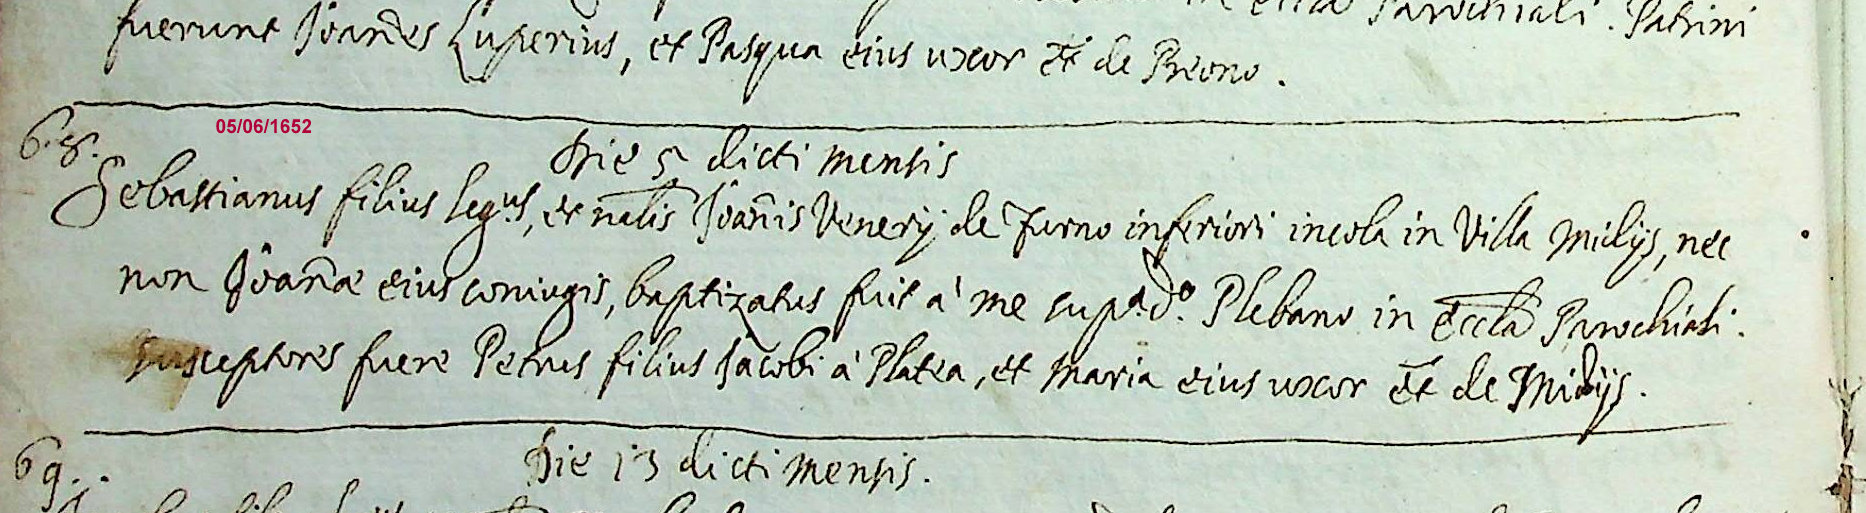 in eccła Parochiali. Patrini
fuerunt Joañes Luperius, et Pasqua eius uxor et̃ de Preono.
05/06/1652
68.
Die 5 dicti mensis
Sebastianus filius leg.us, et nałis Joañis Venerij de Furno inferiori incola in Villa Midijs, nec
non Joañæ eius coniugis, baptizatus fuit à me sup.a d.o Plebano in Eccła Parochiali.
susceptores fuere Petrus filius Jacobi à Platea, et Maria eius uxor et̃ de Midijs.
69.
Die 13 dicti mensis.